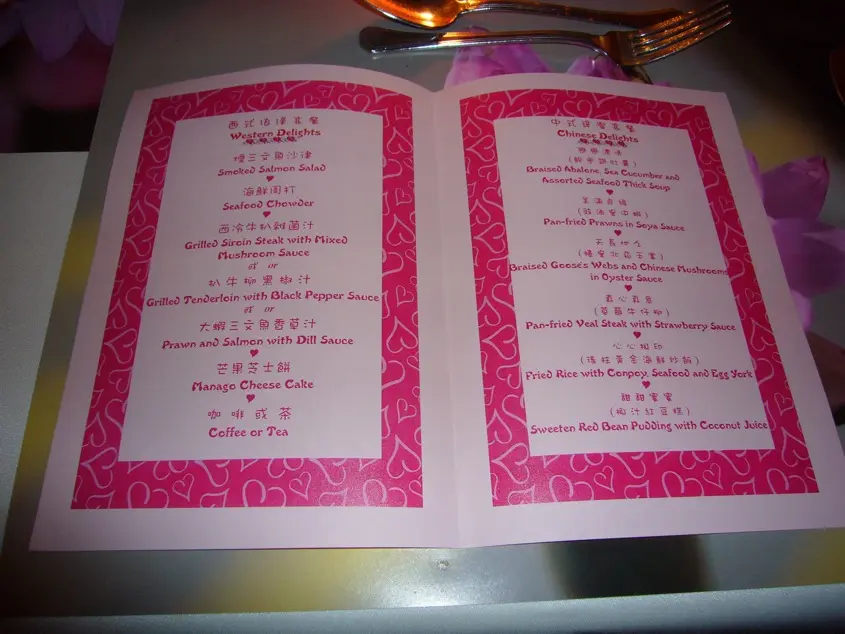 西式 套餐
Western Delights
煙三文魚沙律
Smoked Salmon Salad
海鮮周打
Seafood Chowder
西冷牛扒雜菌汁
Grilled Siroin Steak with Mixed
Mushroom Sauce
或 or
扒牛柳黑椒汁
Grilled Tenderloin with Black Pepper Sauce
或 or
大蝦三文魚香草汁
Prawn and Salmon with Dill Sauce
芒果芝士餅
Manago Cheese Cake
咖啡或茶
Coffee or Tea
中式 套餐
Chinese Delights
Braised Abalone, Sea Cucumber and
Assorted Seafood Thick Soup
美滿良緣
(豉油皇中蝦)
Pan-fried Prawns in Soya Sauce
天長地久
Braised Goose's Webs and Chinese Mushrooms
in Oyster Sauce
真心真意
(草莓牛仔柳)
Pan-fried Veal Steak with Strawberry Sauce
心心相印
(瑤柱黃金海鮮炒飯)
Fried Rice with Conpoy, Seafood and Egg York
甜甜蜜蜜
(椰汁紅豆糕)
Sweeten Red Bean Pudding with Coconut Juice